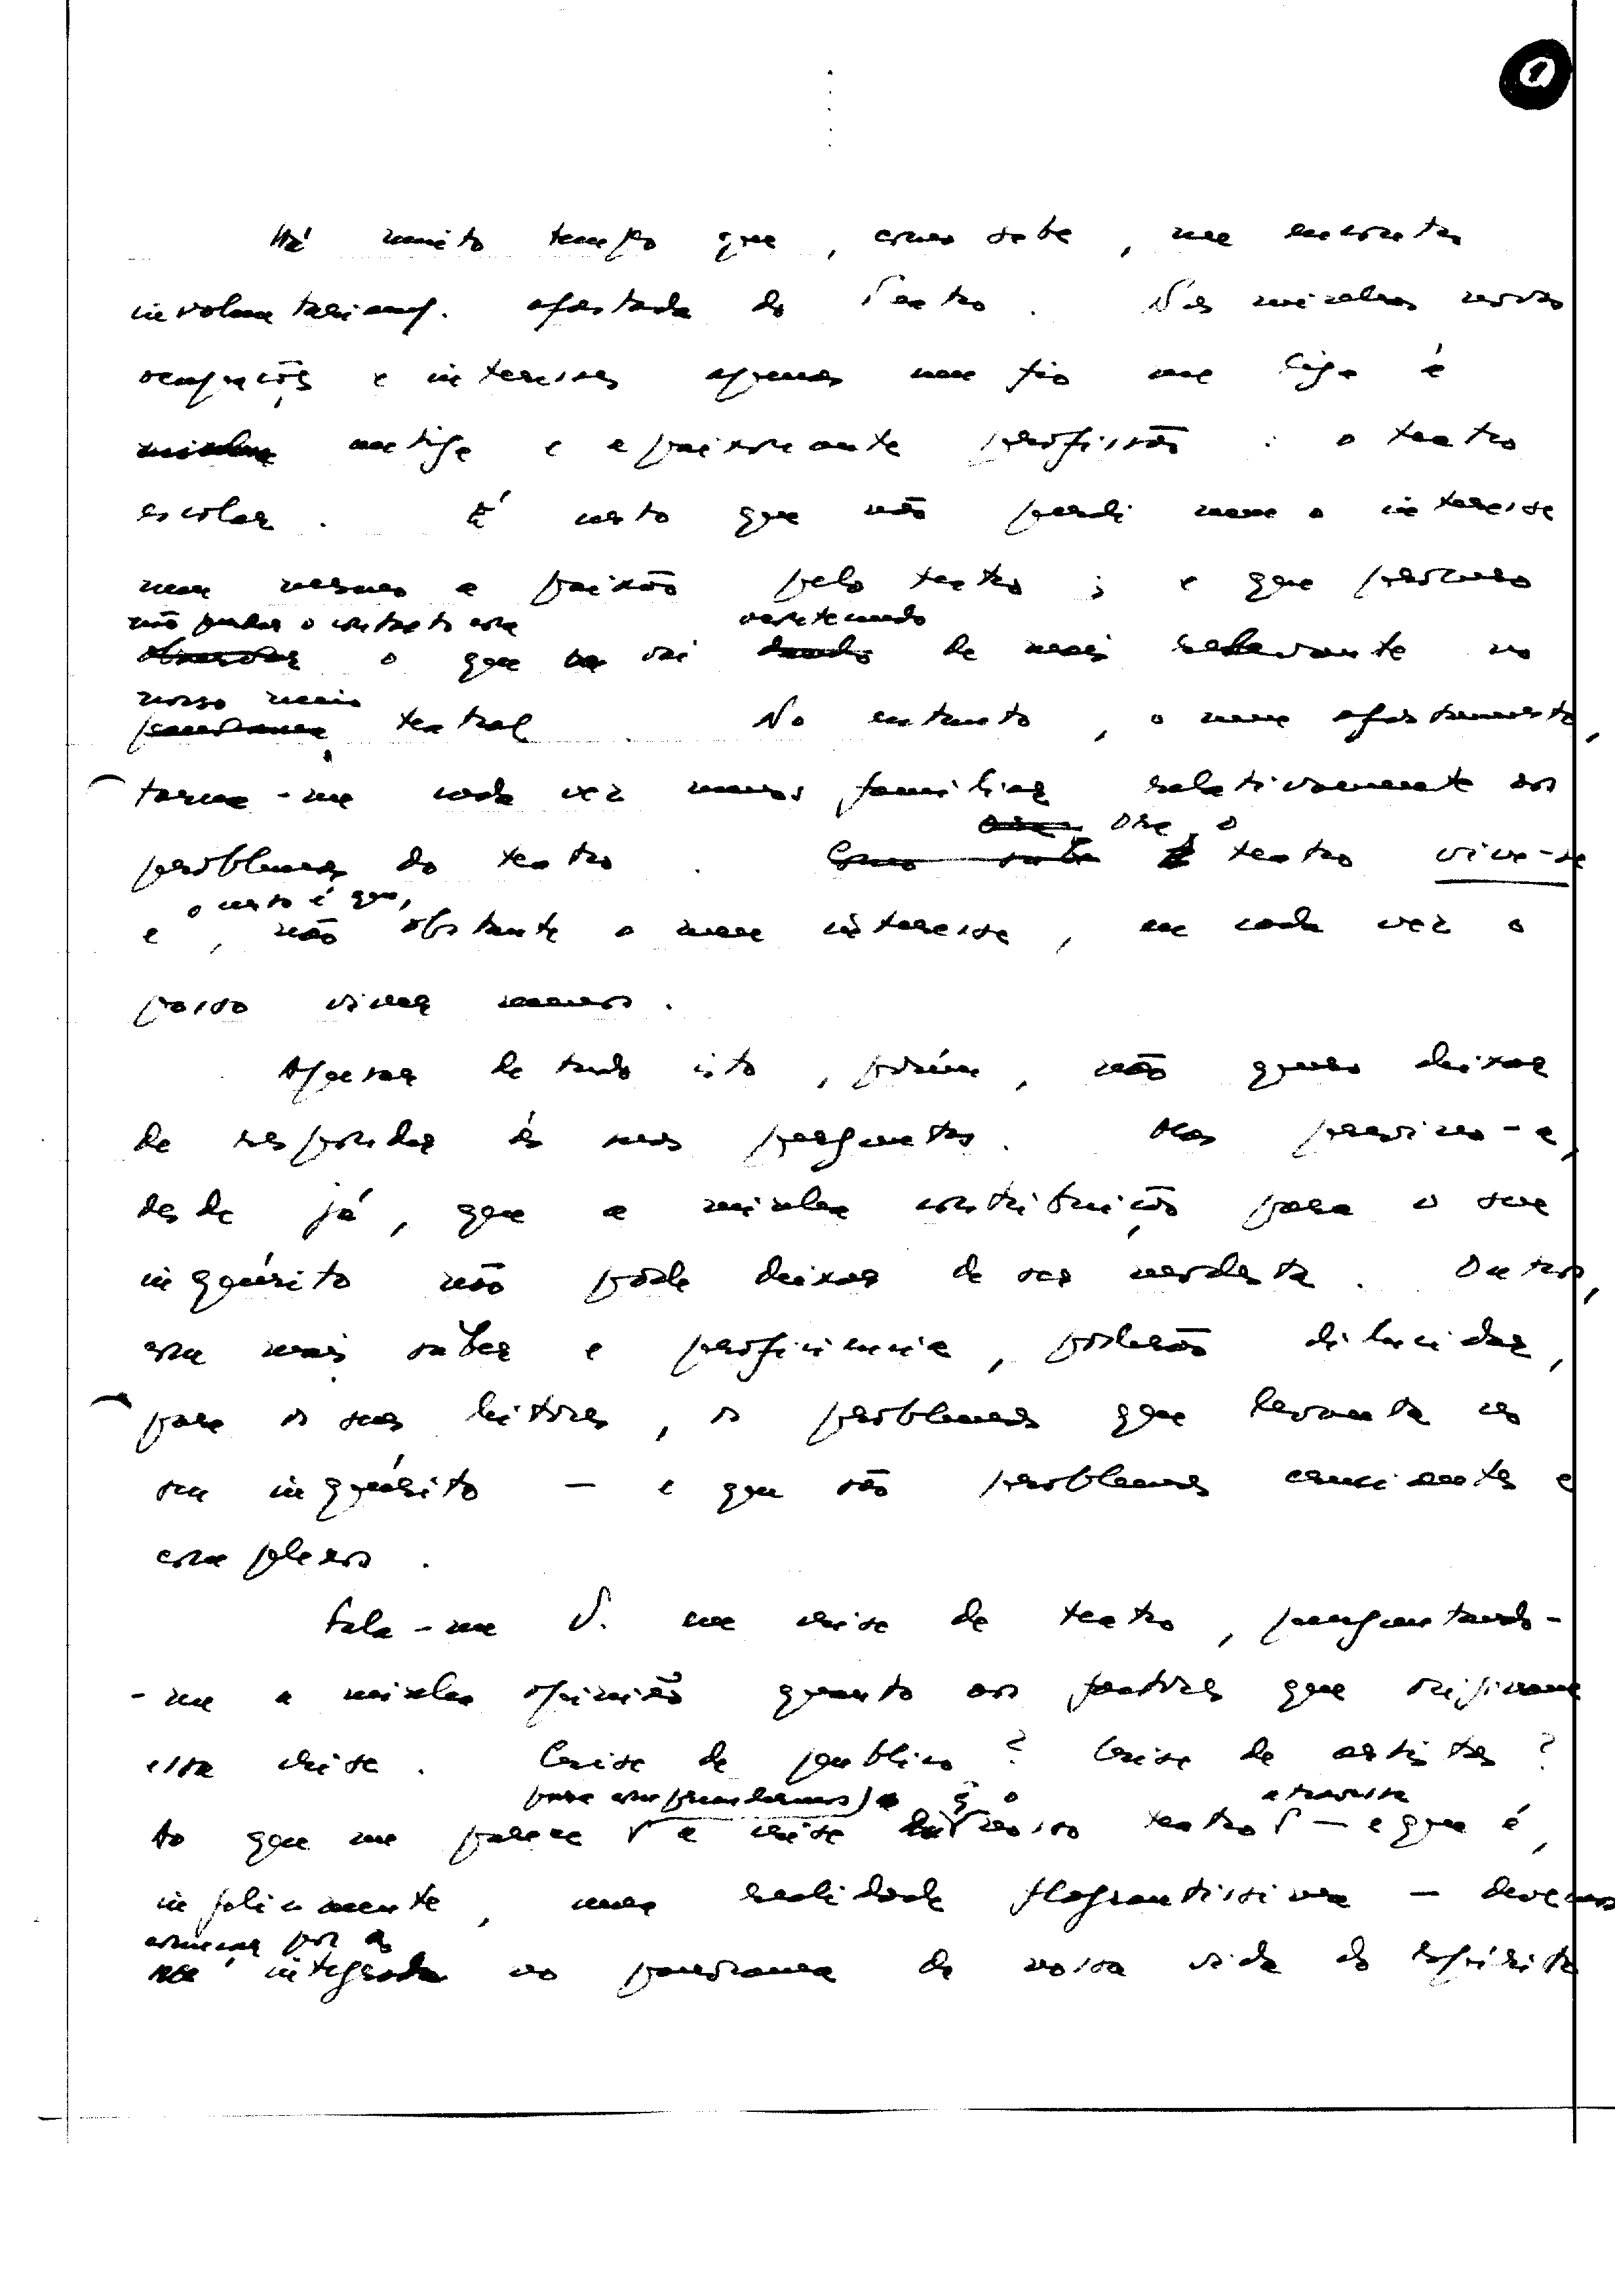 1
Há muito tempo que, como sabe, me encontro
involuntariamt. afastado do Teatro. Nas minhas novas
ocupações e interesses apenas um fio me liga à
minha antiga e apaixonante profissão: o teatro
escolar. É certo que não perdi nem o interesse
nem mesmo a paixão pelo teatro; e que procuro
não perder o contacto com acontecendo
observar o que se vai dando de mais relevante no
nosso meio
panorama teatral. No entanto, o meu afastamento,
torna-me cada vez menos familiar relativamente aos
Ora, Ora, o
problemas do teatro. Como sabe teatro vive-se
o certo é que,
e, não obstante o meu interesse, eu cada vez o
posso viver menos.
Apesar de tudo isto, porém, não quero deixar
de responder às suas perguntas. Mas previno-o,
desde já, que a minha contribuição para o seu
inquérito não pode deixar de ser modesta. Outros,
com mais saber e proficiencia, poderão dilucidar,
para os seus leitores, os problemas que levanta no
seu inquérito — e que são problemas cruciantes e
complexos.
Fala-me V. em crise de teatro, perguntando-
-me a minha opinião quanto aos factores que originam
essa crise. Crise de publico? Crise de artistas?
para compreendermos q o atravessa
Ao que me parece a crise do nosso teatro — e que é,
infelizmente, uma realidade flagrantissima — devemos
começar por a
ser integrada no panorama da nossa vida do espírito